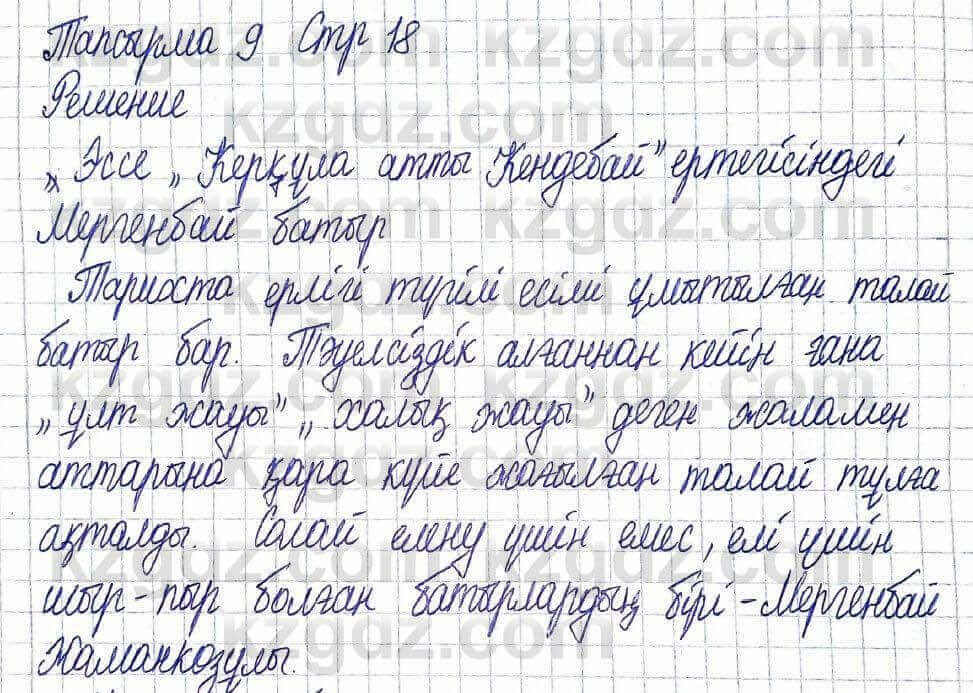 Тапсырма 9 Стр 18
Решение
„Эссе „Керқұла атты Кендебай" ертегісіндегі
Мергенбай батыр
Тариста ерлігі түгілі есімі ұмытылған талай
батыр бар. Тәуелсіздік алғаннан кейін ғана
„ұлт жауы" „халық жауы" деген жаламен
аттарына қара күйе жағылған талай тұлға
ақталды. Солай елену үшін емес, елі үшін
шыр-пыр болған батырлардың бірі - Мергенбай
Жаманкозұлы.
kzgdz.com